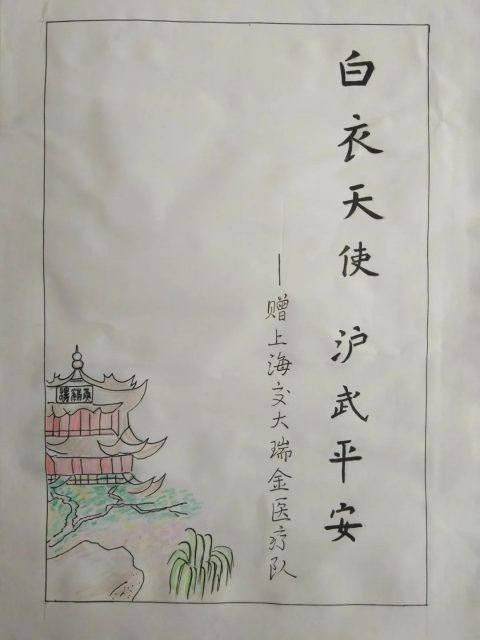 白衣天使 沪武平安
—赠上海交大瑞金医疗队